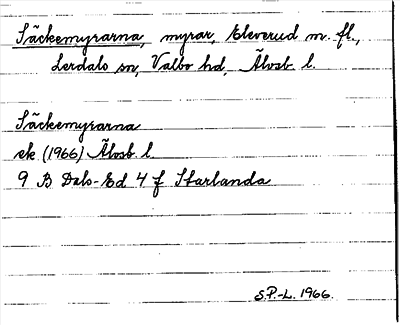 Säckemyrarna, myrar, Eleverud m. fl.,
Lerdals sn, Valbo hd, Älvsb. l.
Säckemyrarna
ek (1966) Älvsb. l.
9 B Dals-Ed 4 f Starlanda
S.P.-L. 1966.